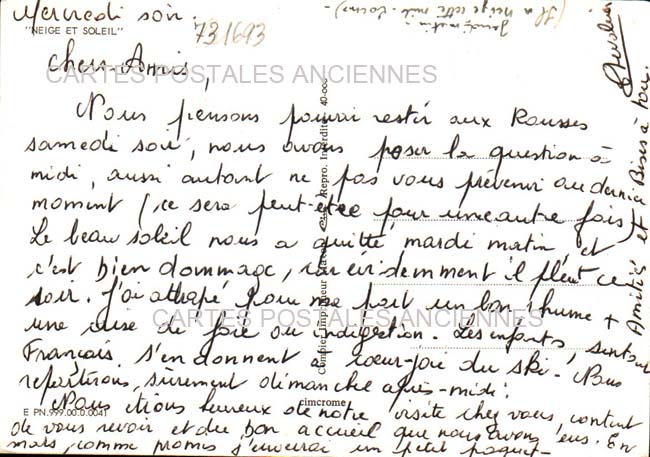 Mercredi soir.
"NEIGE ET SOLEIL"
731693
(Il a neigé cette nuit
Jeudi matin -
Chers Amis,
CARTES POSTALES ANCIENNES
Nous pensons pouvoir rester aux Rousses
samedi soir, nous avons poser la question à
midi, aussi autant ne pas vous prévenir au dernier
moment (ce sera peut-être pour une autre fois)
Le beau soleil nous a quitté mardi matin, et
c'est bien dommage, car évidemment il pleut ce
soir. J'ai attrapé pour ma part un bon rhume +
une crise de foie ou indigestion. Les enfants, surtout
CARTES POSTALES ANCIENNES
Français s'en donnent à cœur-joie du ski - Nous
repartirons, sûrement dimanche après-midi.
cimcrome
Nous étions heureux de notre visite chez vous, content
E PN.999.00.0.0041
de vous revoir et du bon accueil que nous avons eus. En
mars, comme promis j'enverrai un petit paquet -
Amitiés et Bises à tous.
Repro. Interdite 40-000
Combier Imprimeur Macon